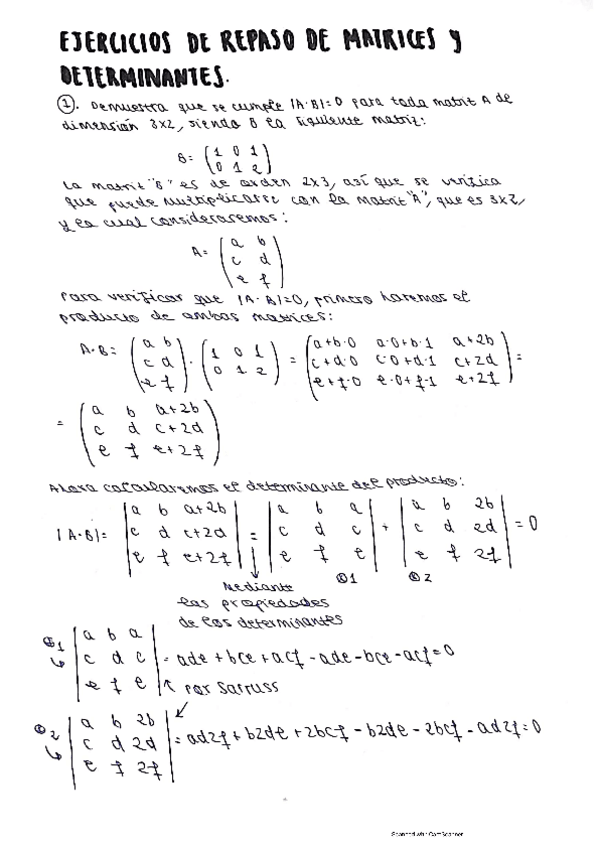 EJERCICIOS DE REPASO DE MATRICES Y
DETERMINANTES.
①. Demuestra que se cumple |A·B|=0 para toda matriz A de
dimensión 3x2, siendo B la siguiente matriz:
B= (1 0 1
0 1 2)
La matriz "B" es de orden 2x3, así que se verifica
que puede multiplicarse con la matriz "A", que es 3x2,
y la cual consideraremos:
A= (a b
c d
e f)
Para verificar que |A·B|=0, primero haremos el
producto de ambas matrices:
A·B= (a b
c d
e f) · (1 0 1
0 1 2) = (a+b·0 a·0+b·1 a+2b
c+d·0 c·0+d·1 c+2d
e+f·0 e·0+f·1 e+2f) =
= (a b a+2b
c d c+2d
e f e+2f)
Ahora calcularemos el determinante del producto:
|A·B|= |a b a+2b
c d c+2d
e f e+2f| = |a b a
c d c
e f e| + |a b 2b
c d 2d
e f 2f| = 0
Mediante
las propiedades
de los determinantes
①1 ①2
①1 |a b a
c d c
e f e| = ade + bce + acf - ade - bce - acf = 0
Por Sarruss
①2 |a b 2b
c d 2d
e f 2f| = ad2f + b2de + 2bcf - b2de - 2bcf - ad2f = 0
Scanned with CamScanner